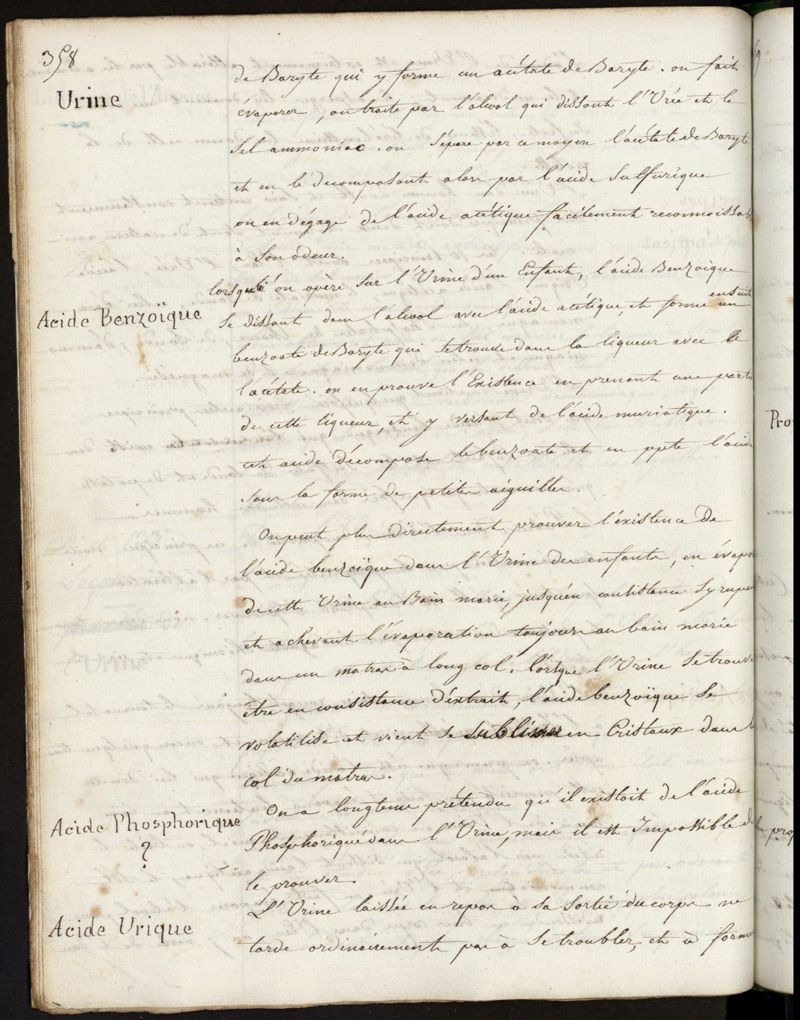 358
Urine
de Baryte qui y forme un acétate de Baryte. on fait
évaporer, on traite par l'alcool qui dissout l'Urée et le
Sel ammoniac. on Sépare par ce moyen l'acétate de Baryte
et en le décomposant alors par l'acide Sulfurique
on en dégage de l'acide acétique facilement reconnoissab
à Son odeur.
lorsqu'on opère Sur l'Urine d'un Enfant, l'acide Benzoïque
Acide Benzoïque
Se dissout dans l'alcool avec l'acide acétique, et forme ensuite un
benzoate de Baryte qui Se trouve dans la liqueur avec le
l'acétate. on en prouve l'Existence en prenant une partie
de cette liqueur, et y versant de l'acide muriatique.
cet acide décompose le benzoate et en ppte l'acide
sous la forme de petites aiguilles.
On peut plus directement prouver l'existence De
l'acide benzoïque dans l'Urine des enfants, en évapo
de cette Urine au Bain marie jusqu'en consistance Syrupeu
et achevant l'évaporation toujours au bain marie
dans un matras à long col. lorsque l'Urine Se trouve
être en consistance d'extrait, l'acide benzoïque Se
volatilise et vient se sublimer en Cristaux dans le
col du matras.
On a longtems prétendu qu'il existoit de l'acide
Acide Phosphorique
?
Phosphorique dans l'Urine, mais il est Impossible de
le prouver.
Acide Urique
L'Urine laissée en repos à sa sortie du corps ne
tarde ordinairement pas à Se troubler, et à former
Pro